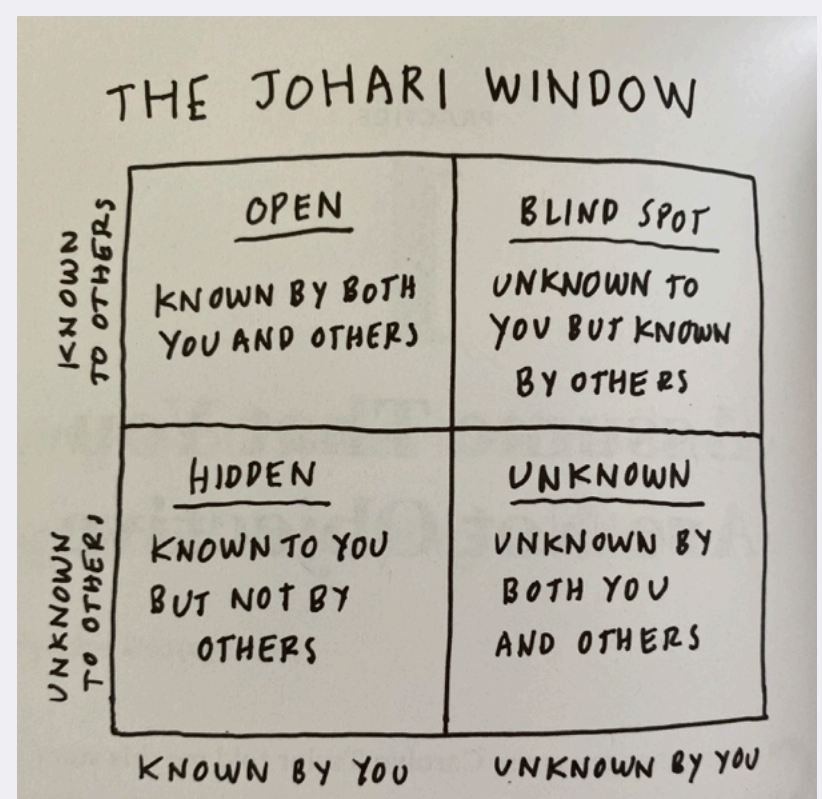 THE JOHARI WINDOW
KNOWN
TO OTHERS
OPEN
KNOWN BY BOTH
YOU AND OTHERS
BLIND SPOT
UNKNOWN TO
YOU BUT KNOWN
BY OTHERS
UNKNOWN
TO OTHERS
HIDDEN
KNOWN TO YOU
BUT NOT BY
OTHERS
UNKNOWN
UNKNOWN BY
BOTH YOU
AND OTHERS
KNOWN BY YOU
UNKNOWN BY YOU